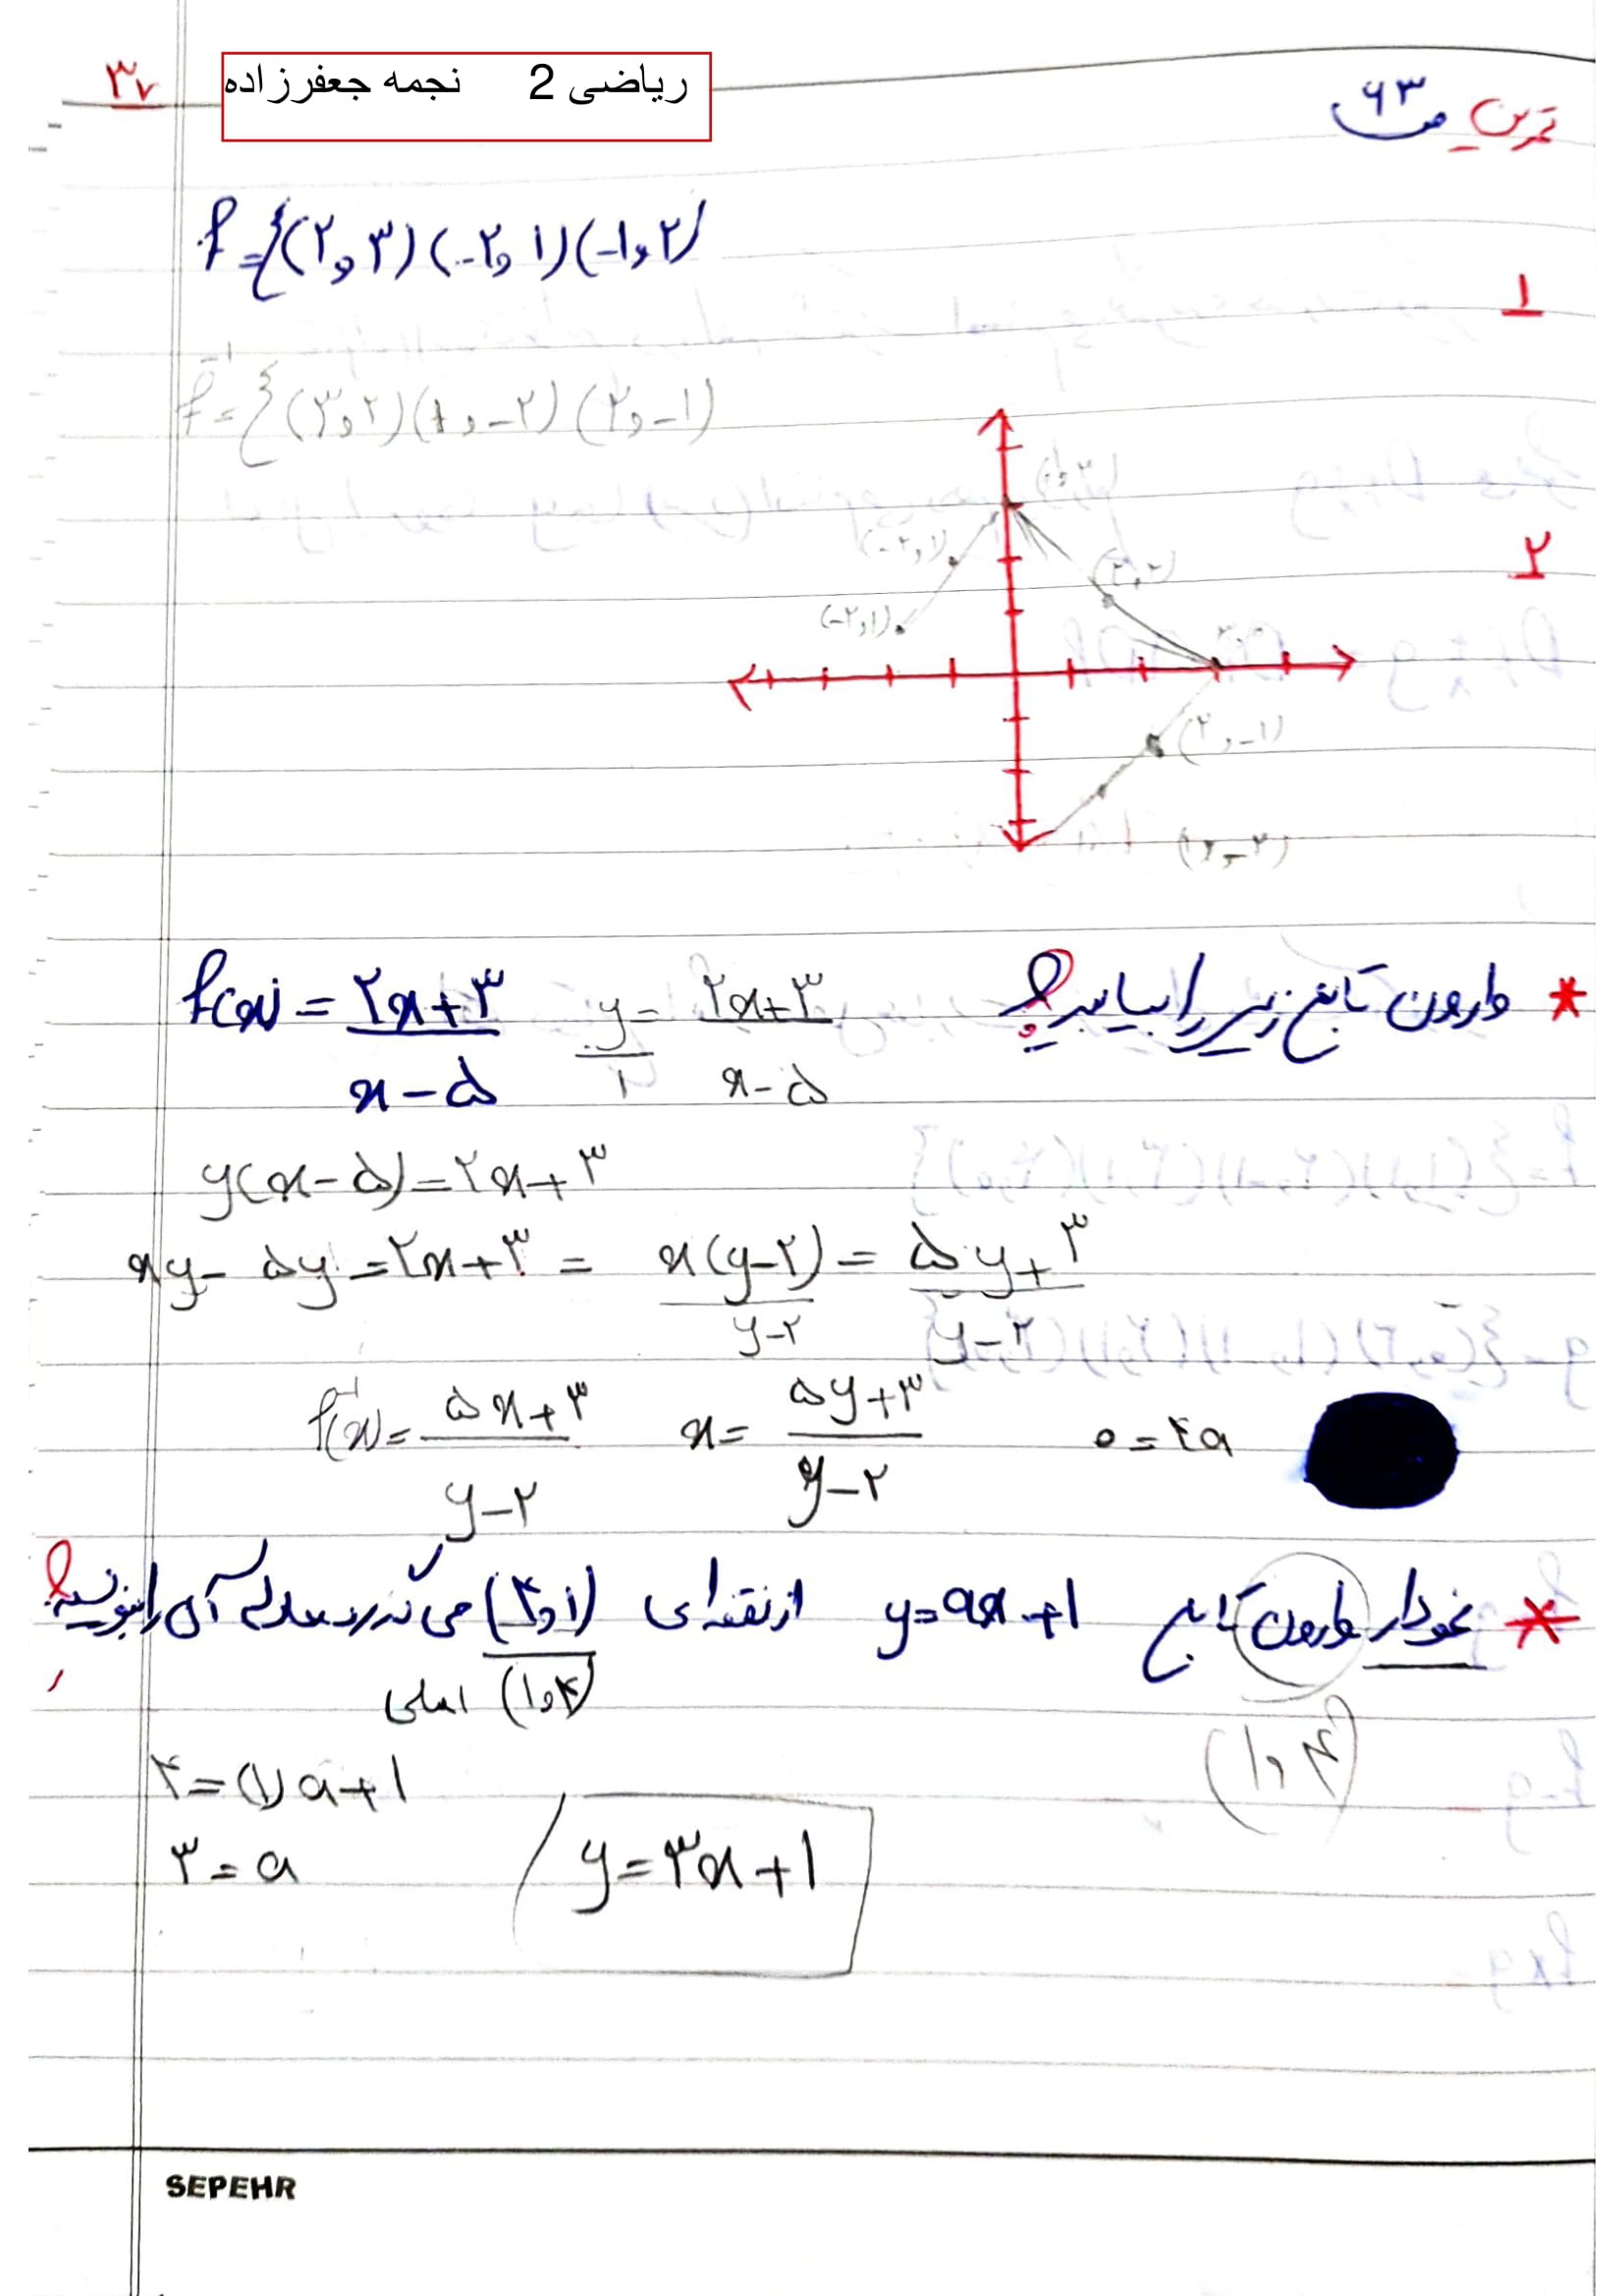 ۳۷
ریاضی 2 نجمه جعفرزاده
تمرین ص ۶۳
f = {(۲,۳)(-۲,۱)(-۱,۲)
۱
f⁻¹ = {(۳,۲)(۱,-۲)(۲,-۱)
۲
(۰,۳)
(-۲,۱)
(۲,۲)
(-۲,۱)
(۲,-۱)
* وارون تابع زیر را بیابید؟ f(x) = ۲x+۳ / x-۵ y/۱ = ۲x+۳ / x-۵
y(x-۵)=۲x+۳
xy-۵y=۲x+۳ = x(y-۲) / y-۲ = ۵y+۳ / y-۲
f⁻¹(x)= ۵x+۳ / y-۲ x= ۵y+۳ / y-۲ ۰=۴a
* نمودار وارون تابع y=ax+۱ از نقطه‌ای (۴,۱) می‌گذرد معادله آن را بنویسید؟
(۴,۱) اصلی
(۱,۴)
۴=(۱)a+۱
۳=a
y=۳x+۱
SEPEHR